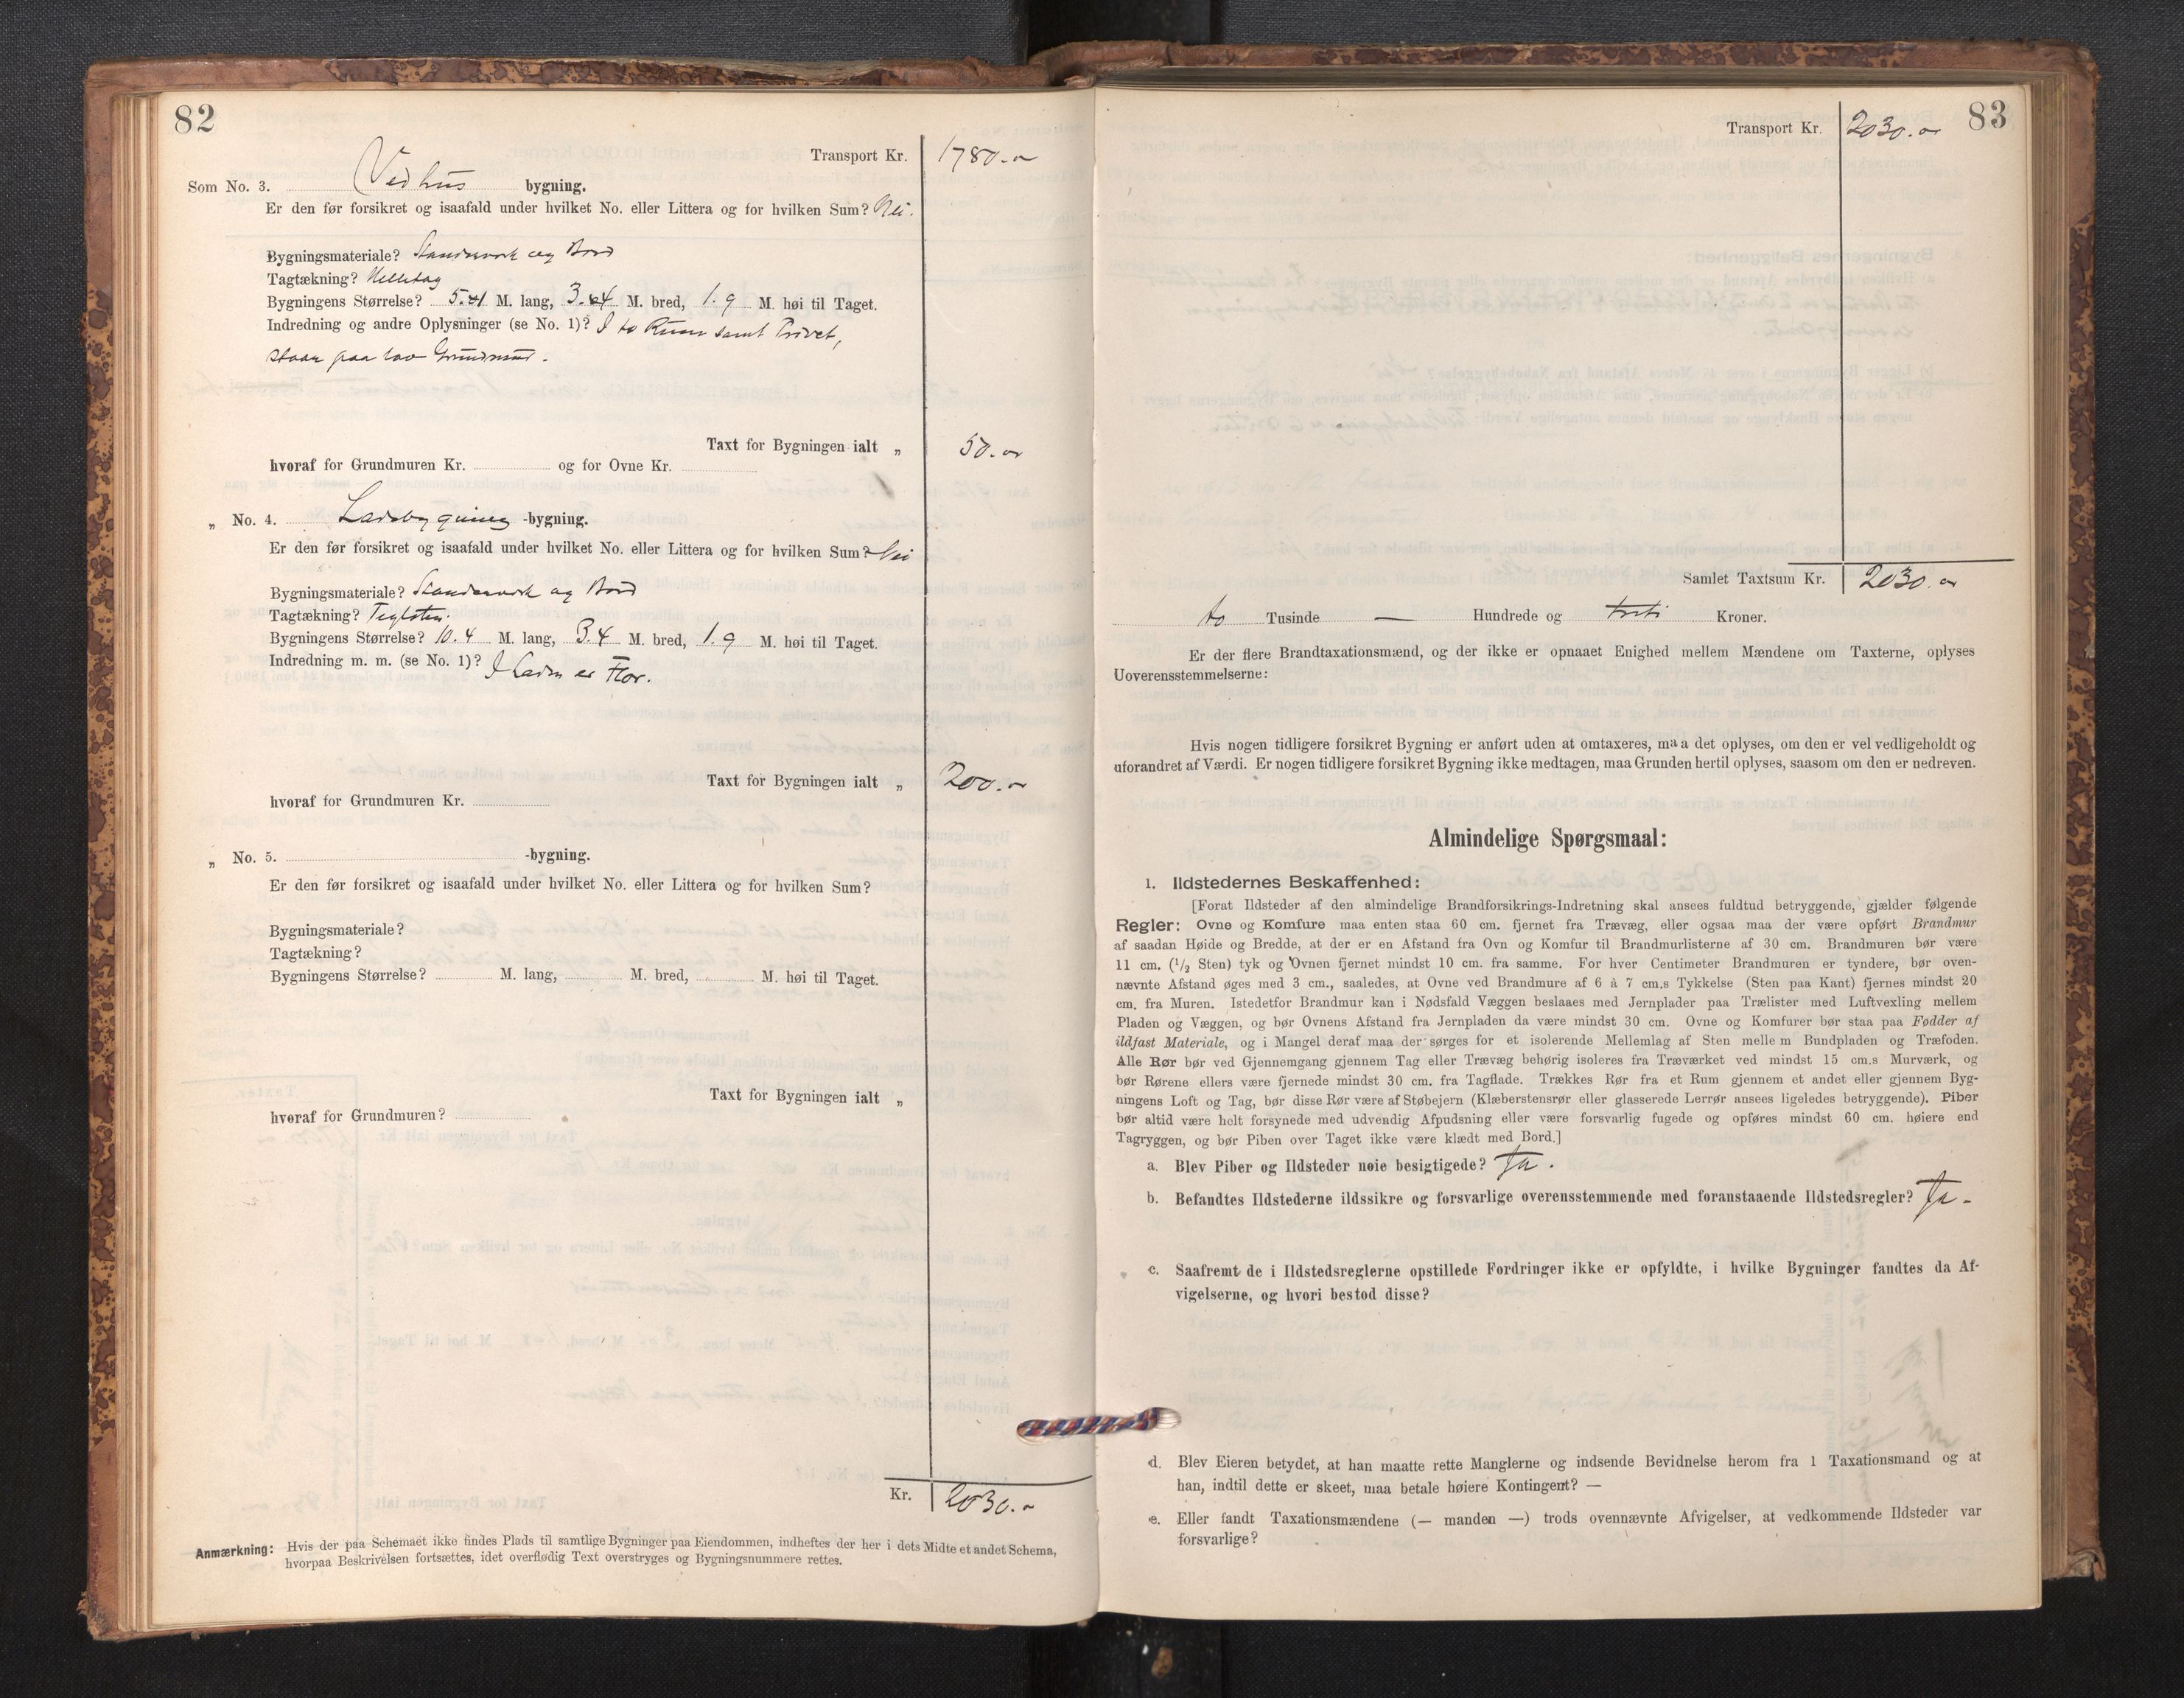 82
Transport Kr. 1780.00
Som No. 3. Vedhus bygning.
Er den før forsikret og isaafald under hvilket No. eller Littera og for hvilken Sum? Nei.
Bygningsmateriale? Standerverk og Bord
Tagtækning? Helletag
Bygningens Størrelse? M. lang, M. bred, 1.9 M. høi til Taget.
Indredning og andre Oplysninger (se No. 1)? I to Rum samt Privet,
staar paa lav Grundmur.
Taxt for Bygningen ialt „ 50.00
hvoraf for Grundmuren Kr. og for Ovne Kr.
„ No. 4. Ladebygning -bygning.
Er den før forsikret og isaafald under hvilket No. eller Littera og for hvilken Sum? Nei
Bygningsmateriale? Standerverk og Bord
Tagtækning? Teglsten.
Bygningens Størrelse? 10.4 M. lang, 3.4 M. bred, 1.9 M. høi til Taget.
Indredning m. m. (se No. 1)? I Laden er Flor.
Taxt for Bygningen ialt „ 200.00
hvoraf for Grundmuren Kr.
„ No. 5. -bygning.
Er den før forsikret og isaafald under hvilket No. eller Littera og for hvilken Sum?
Bygningsmateriale?
Tagtækning?
Bygningens Størrelse? M. lang, M. bred, M. høi til Taget.
Taxt for Bygningen ialt „
hvoraf for Grundmuren?
Kr. 2030.00
Anmærkning: Hvis der paa Schemaet ikke findes Plads til samtlige Bygninger paa Eiendommen, indheftes der her i dets Midte et andet Schema,
hvorpaa Beskrivelsen fortsættes, idet overflødig Text overstryges og Bygningsnummere rettes.
83
Transport Kr. 2030.00
Samlet Taxtsum Kr. 2030.00
to Tusinde — Hundrede og treti Kroner.
Er der flere Brandtaxationsmænd, og der ikke er opnaaet Enighed mellem Mændene om Taxterne, oplyses
Uoverensstemmelserne:
Hvis nogen tidligere forsikret Bygning er anført uden at omtaxeres, maa det oplyses, om den er vel vedligeholdt og
uforandret af Værdi. Er nogen tidligere forsikret Bygning ikke medtagen, maa Grunden hertil oplyses, saasom om den er nedreven.
Almindelige Spørgsmaal:
1. Ildstedernes Beskaffenhed:
[Forat Ildsteder af den almindelige Brandforsikrings-Indretning skal ansees fuldtud betryggende, gjælder følgende
Regler: Ovne og Komfure maa enten staa 60 cm. fjernet fra Trævæg, eller ogsaa maa der være opført Brandmur
af saadan Høide og Bredde, at der er en Afstand fra Ovn og Komfur til Brandmurlisterne af 30 cm. Brandmuren bør være
11 cm. (1/2 Sten) tyk og Ovnen fjernet mindst 10 cm. fra samme. For hver Centimeter Brandmuren er tyndere, bør oven-
nævnte Afstand øges med 3 cm., saaledes, at Ovne ved Brandmure af 6 à 7 cm.s Tykkelse (Sten paa Kant) fjernes mindst 20
cm. fra Muren. Istedetfor Brandmur kan i Nødsfald Væggen beslaaes med Jernplader paa Trælister med Luftvexling mellem
Pladen og Væggen, og bør Ovnens Afstand fra Jernpladen da være mindst 30 cm. Ovne og Komfurer bør staa paa Fødder af
ildfast Materiale, og i Mangel deraf maa der sørges for et isolerende Mellemlag af Sten mellem Bundpladen og Træfoden.
Alle Rør bør ved Gjennemgang gjennem Tag eller Trævæg behørig isoleres fra Træværket ved mindst 15 cm.s Murværk, og
bør Rørene ellers være fjernede mindst 30 cm. fra Tagflade. Trækkes Rør fra et Rum gjennem et andet eller gjennem Byg-
ningens Loft og Tag, bør disse Rør være af Støbejern (Klæberstensrør eller glasserede Lerrør ansees ligeledes betryggende). Piber
bør altid være helt forsynede med udvendig Afpudsning eller være forsvarlig fugede og opføres mindst 60 cm. høiere end
Tagryggen, og bør Piben over Taget ikke være klædt med Bord.]
a. Blev Piber og Ildsteder nøie besigtigede? Ja.
b. Befandtes Ildstederne ildssikre og forsvarlige overensstemmende med foranstaaende Ildstedsregler? Ja-
c. Saafremt de i Ildstedsreglerne opstillede Fordringer ikke er opfyldte, i hvilke Bygninger fandtes da Af-
vigelserne, og hvori bestod disse?
d. Blev Eieren betydet, at han maatte rette Manglerne og indsende Bevidnelse herom fra 1 Taxationsmand og at
han, indtil dette er skeet, maa betale høiere Kontingent? —
e. Eller fandt Taxationsmændene (— manden —) trods ovennævnte Afvigelser, at vedkommende Ildsteder var
forsvarlige?